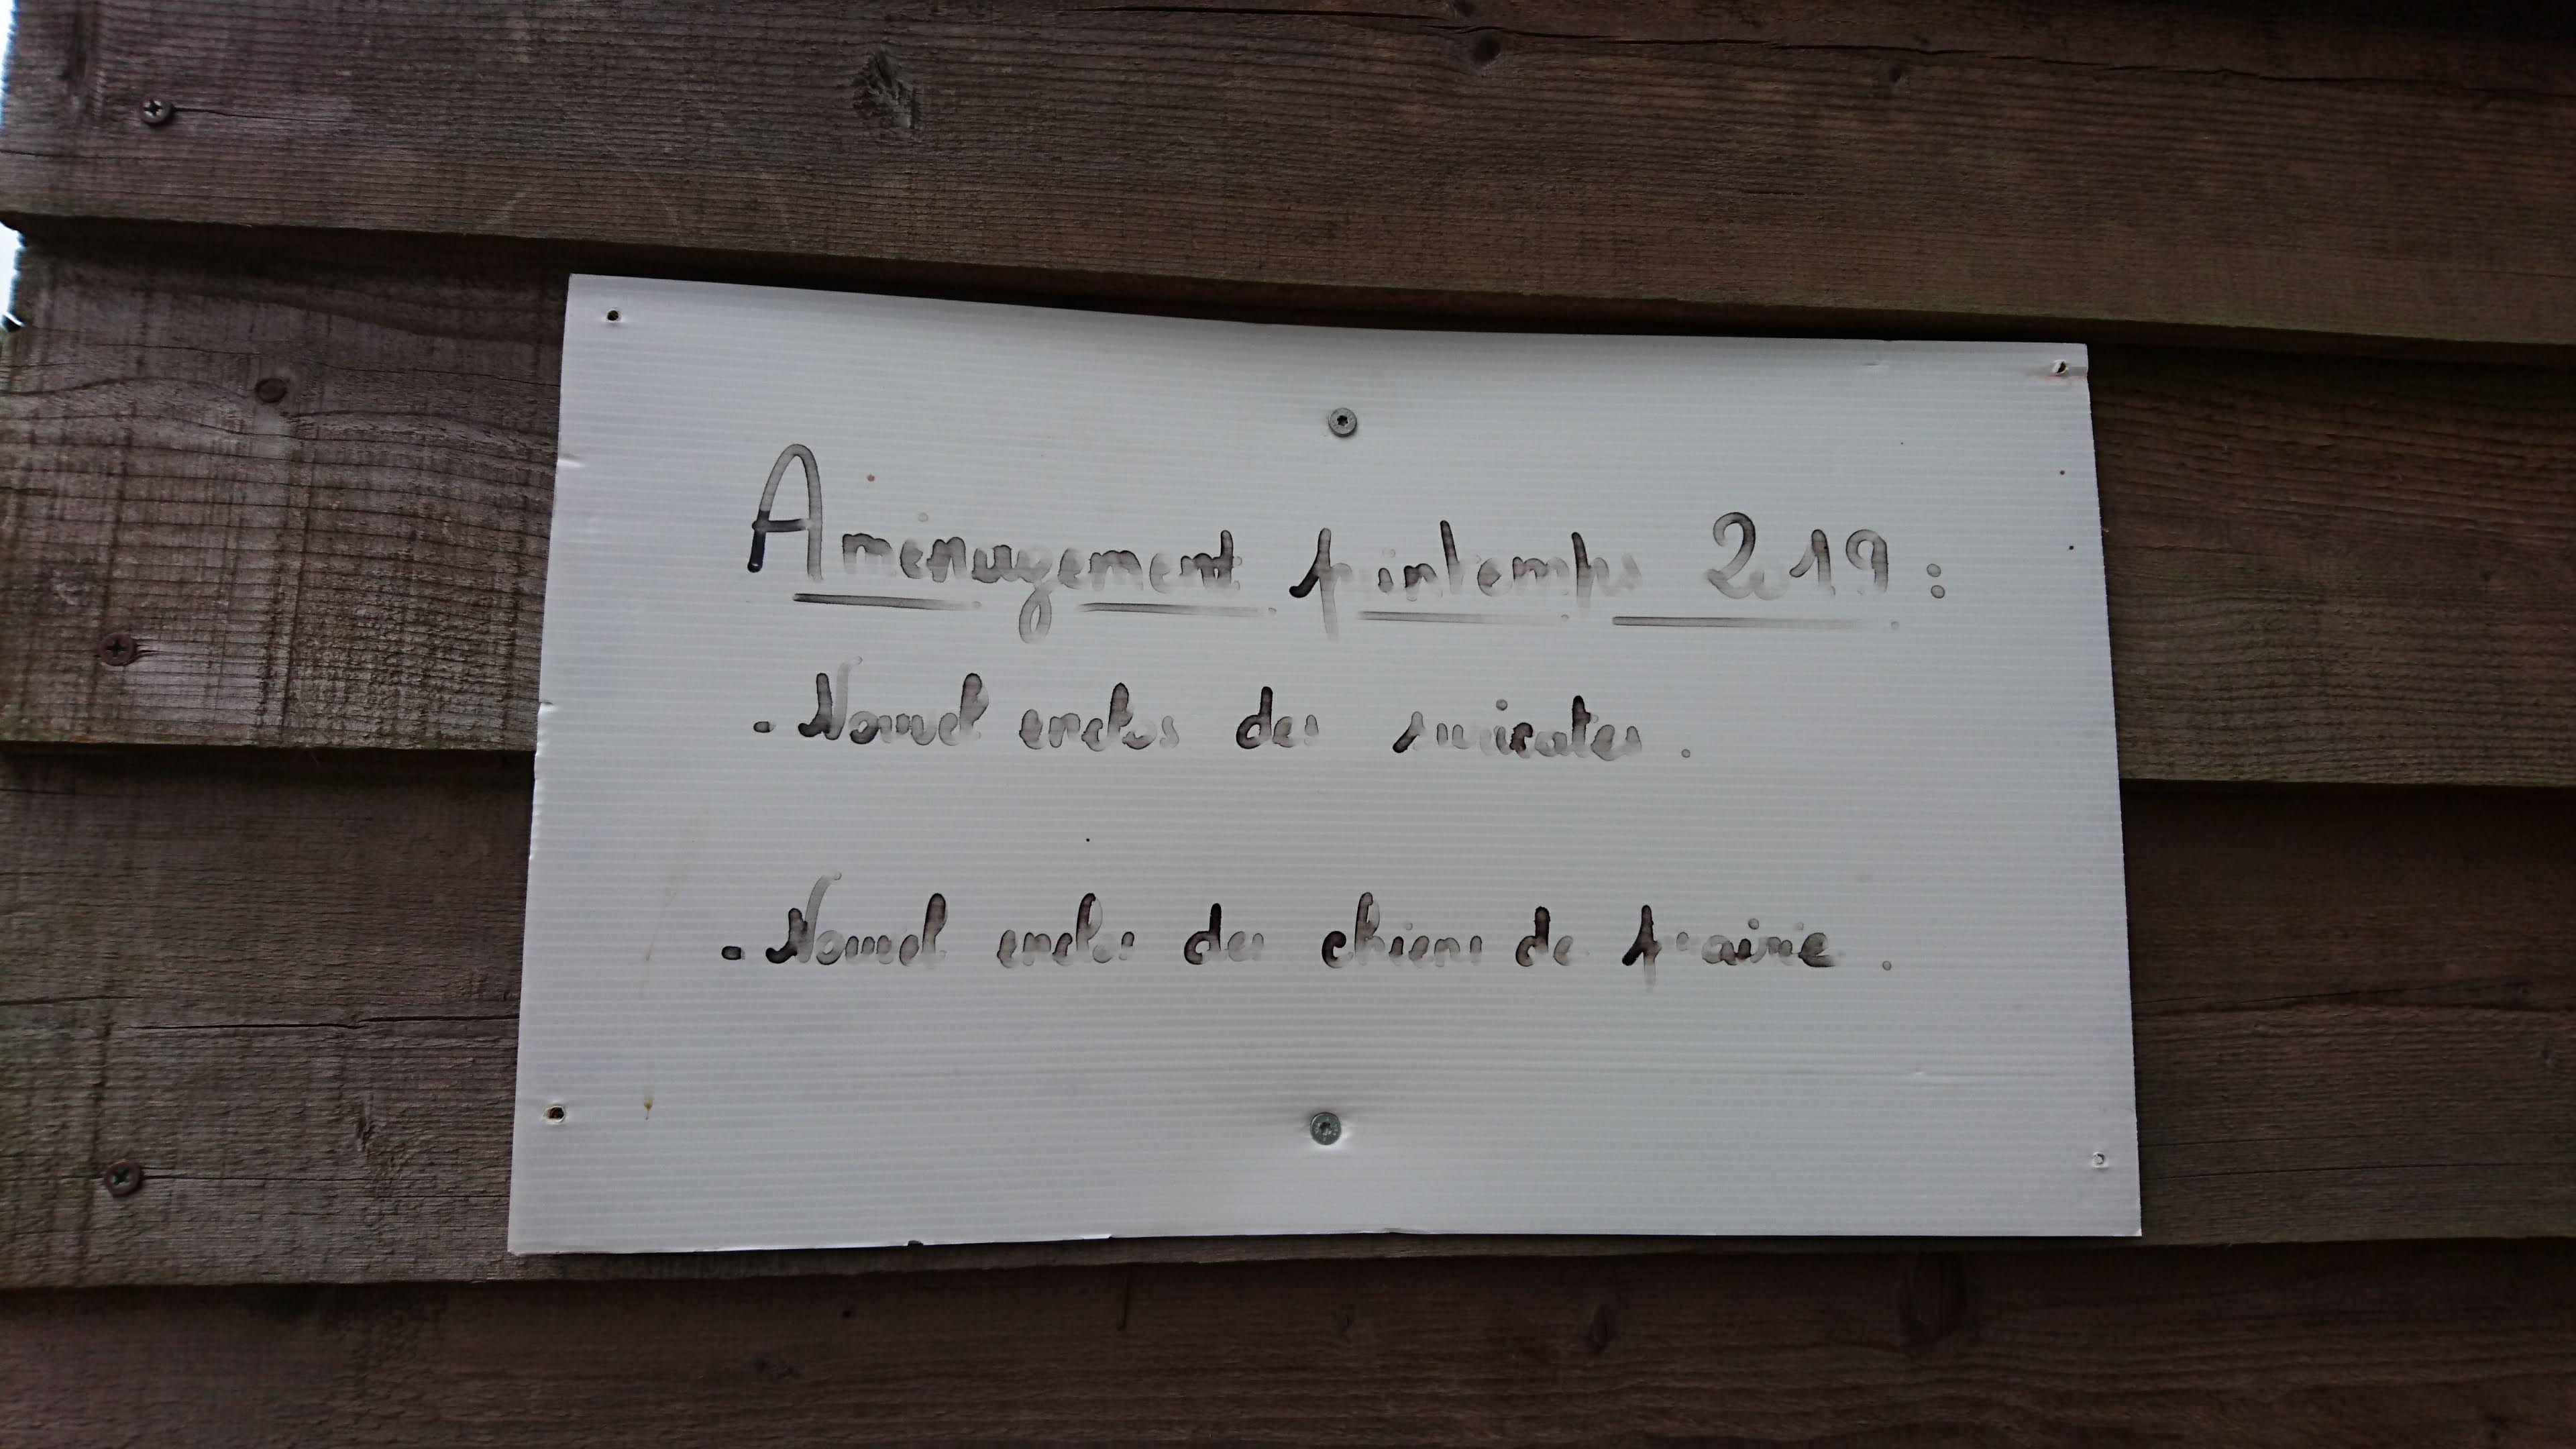 Aménagement printemps 2019 :
- Nouvel enclos des suricates.
- Nouvel enclos des chiens de prairie.